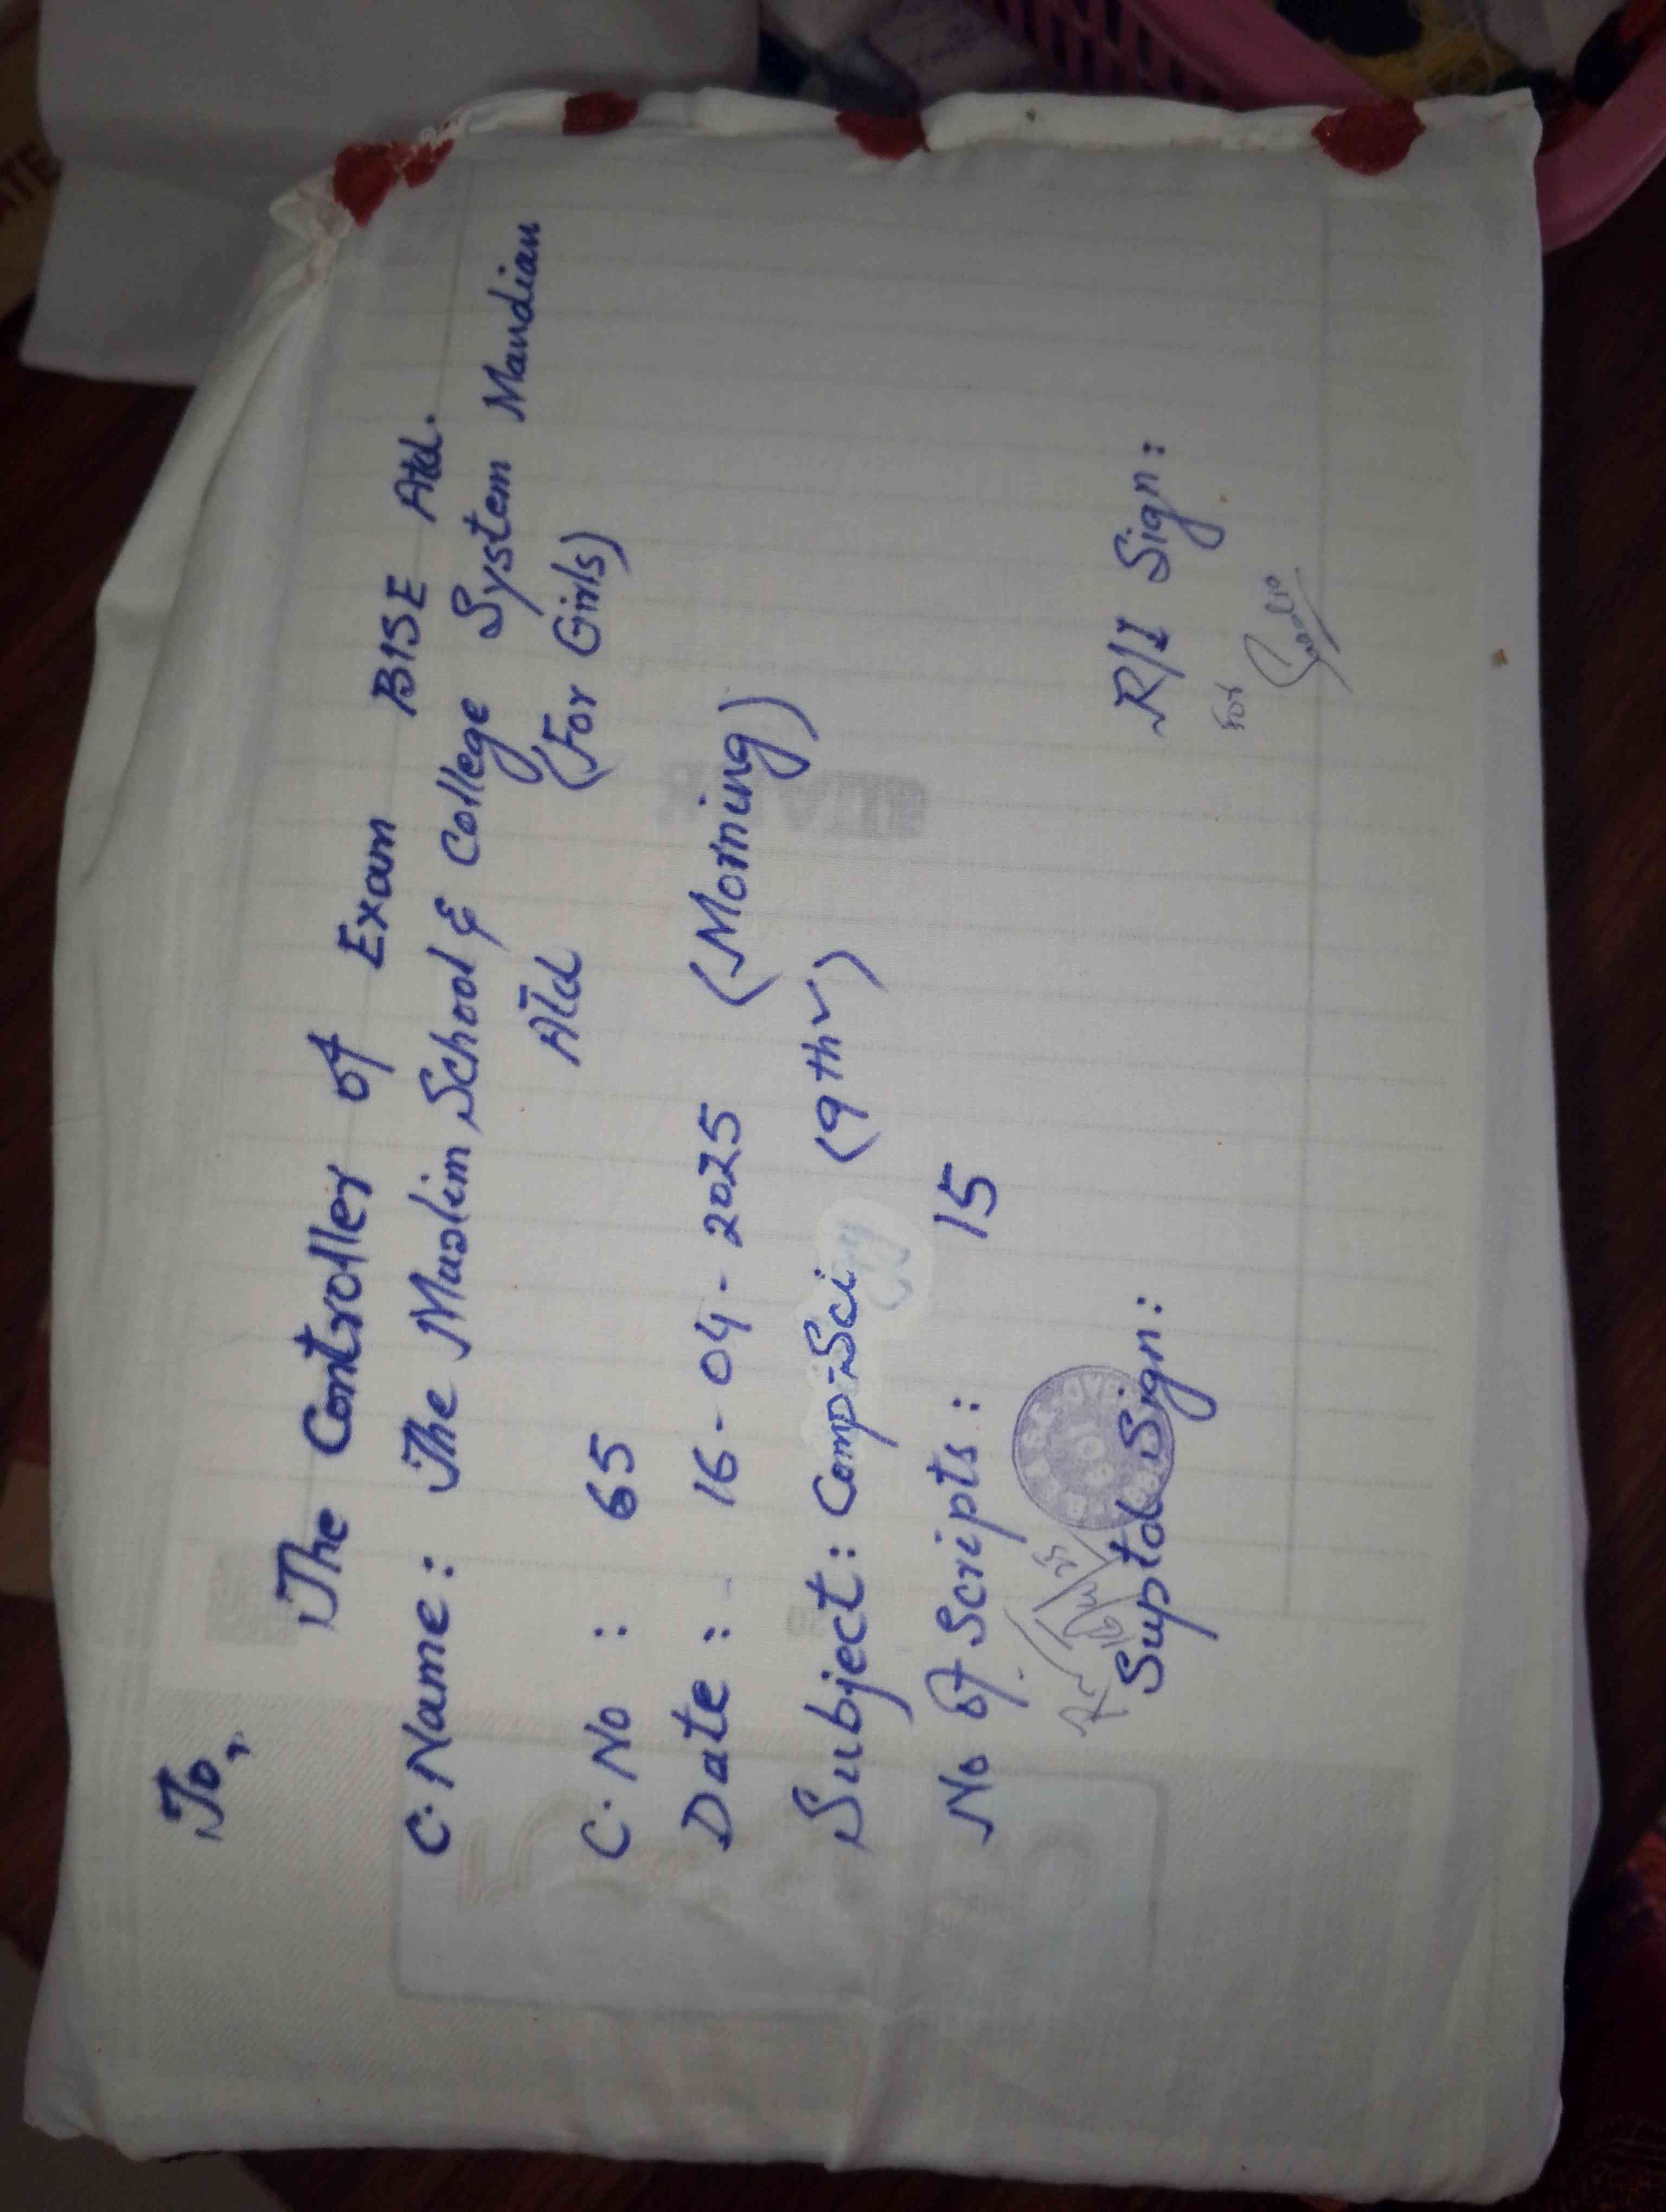 To,
The Controller of Exam BISE Atd.
C.Name: The Muslim School & College System Mandian
Atd (For Girls)
C.No : 65
Date : 16-04-2025 (Morning)
Subject: Comp-Sci (9th)
No of Scripts: 15
Suptd Sign: R/I Sign:
For